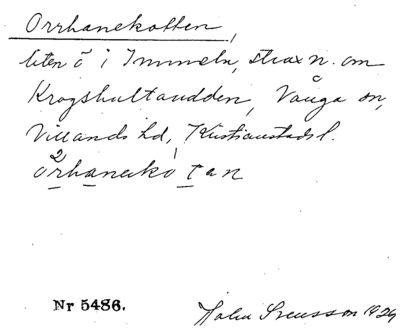 Orrhanekotten,
liten ö i Immeln, strax n. om
Krogshultaudden, Vånga sn,
Villands hd, Kristianstads l.
Nr 5486.
Svensson 1929